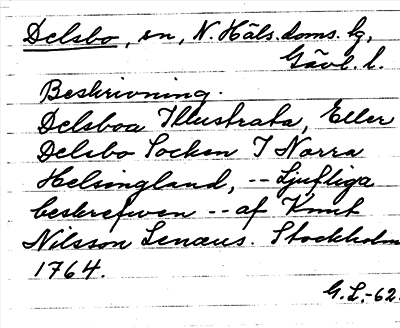 Delsbo, sn, N. Häls. doms. lg,
Gävl. l.
Beskrivning.
Delsboa Illustrata, Eller
Delsbo Socken I Norra
Helsingland, -- Ljufliga
beskrefwen -- af Knut
Nilsson Lenæus. Stockholm
1764.
G. L. -62.